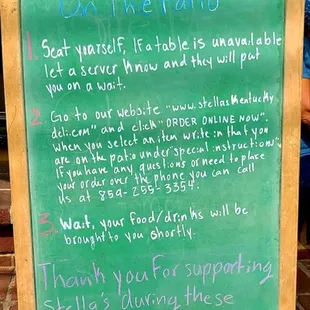 On The Patio
1. Seat yourself, If a table is unavailable
let a server know and they will put
you on a wait.
2. Go to our website "www.stellaskentucky
deli.com" and click "ORDER ONLINE NOW".
when you select an item write in that you
are on the patio under "special instructions".
If you have any questions or need to place
your order over the phone you can call
us at 859-255-3354.
3. Wait, your food/drinks will be
brought to you shortly.
Thank you For supporting
Stella's during these